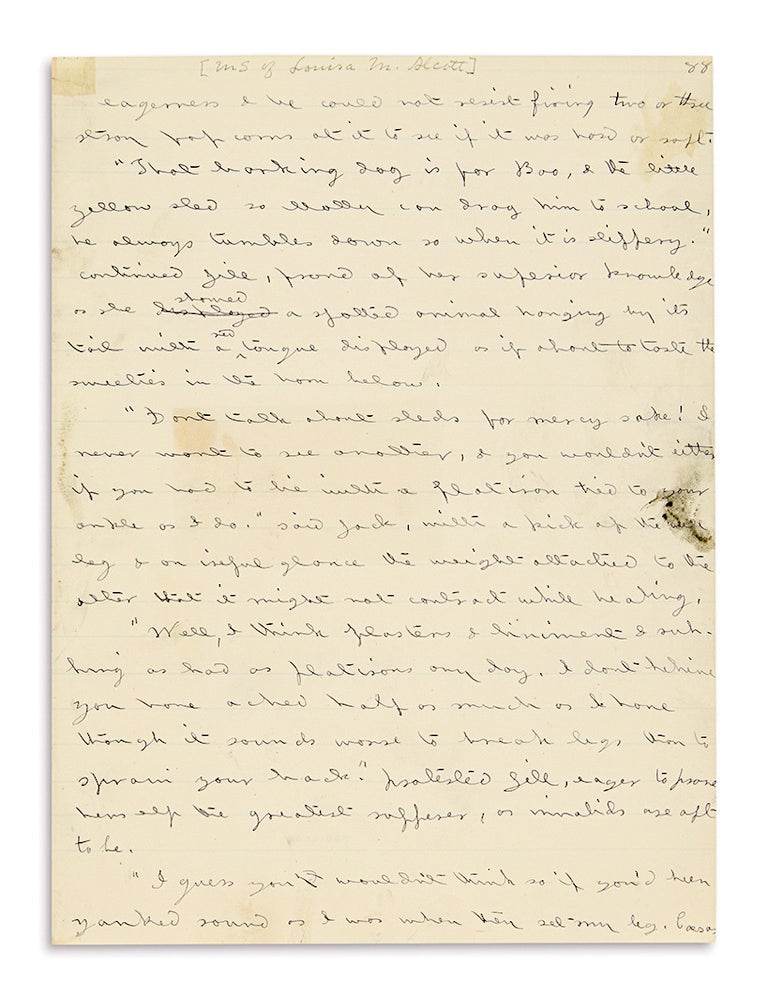 [MS of Louisa M. Alcott]
88
eagerness & he could not resist firing two or three
stray pop corns at it to see if it was hard or soft.
"That barking dog is for Boo, & the little
yellow sled so Molly can drag him to school,
he always tumbles down so when it is slippery."
continued Jill, proud of her superior knowledge
as she displayed showed a spotted animal hanging by its
tail with a red tongue displayed as if about to taste the
sweeties in the horn below.
"Dont talk about sleds for mercy sake! I
never want to see another, & you wouldn't either
if you had to lie with a flatiron tied to your
ankle as I do." said Jack, with a kick of the well
leg & an ireful glance the weight attached to the
other that it might not contract while healing.
"Well, I think plasters & liniment & rub-
bing as bad as flatirons any day. I dont believe
you have ached half as much as I have
though it sounds worse to break legs than to
sprain your back." protested Jill, eager to prove
herself the greatest sufferer, as invalids are apt
to be.
"I guess you wouldn't think so if you'd been
yanked round as I was when they set my leg. Caesar